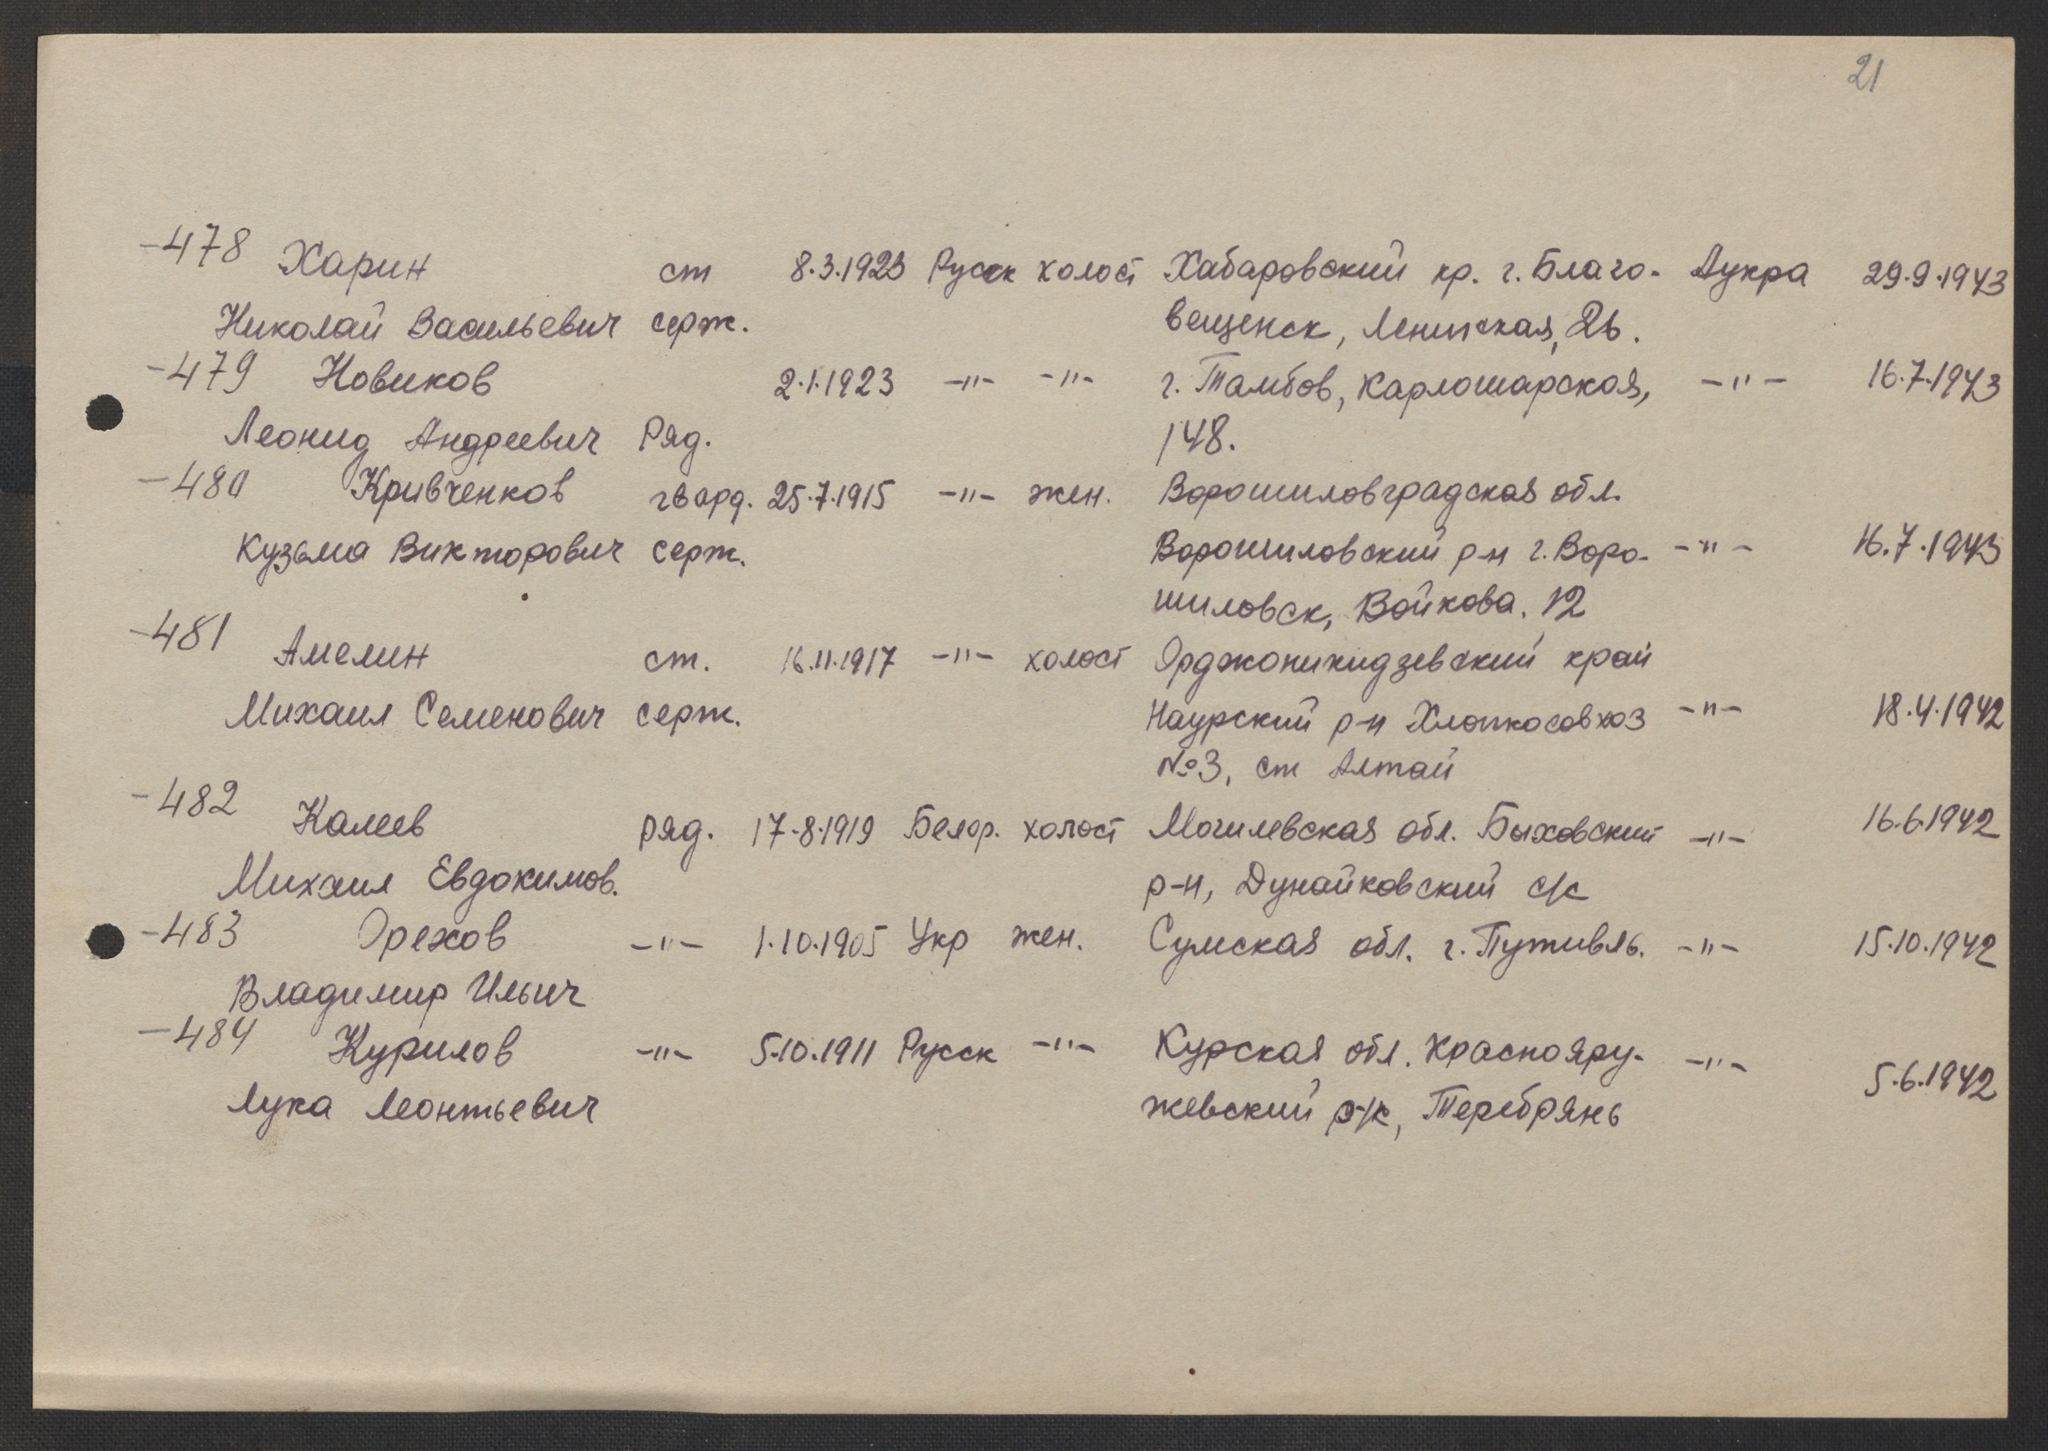 21
-478 Харин ст 8.3.1923 Русск холост Хабаровский кр. г. Благо- Аукра 29.9.1943
Николай Васильевич серж. вещенск, Ленинская, 26.
-479 Новиков 2.1.1923 -"- -"- г. Тамбов, Карломарская, -"- 16.7.1943
Леонид Андреевич Ряд. 148.
-480 Кривченков гвард. 25.7.1915 -"- жен. Ворошиловградская обл.
Кузьма Викторович серж. Ворошиловский р-н г. Воро- -"- 16.7.1943
шиловск, Войкова. 12
-481 Амелин ст. 16.11.1917 -"- холост Орджоникидзевский край
Михаил Семенович серж. Наурский р-н Хлопкосовхоз -"- 18.4.1942
№3, ст Алтай
-482 Калеев ряд. 17.8.1919 Белор. холост Могилевская обл. Быховский -"- 16.6.1942
Михаил Евдокимов. р-н, Дунайковский с/с
-483 Орехов -"- 1.10.1905 Укр жен. Сумская обл. г. Путивль. -"- 15.10.1942
Владимир Ильич
-484 Курилов -"- 5.10.1911 Русск -"- Курская обл. Краснояру- -"- 5.6.1942
Лука Леонтьевич жевский Теребрянь